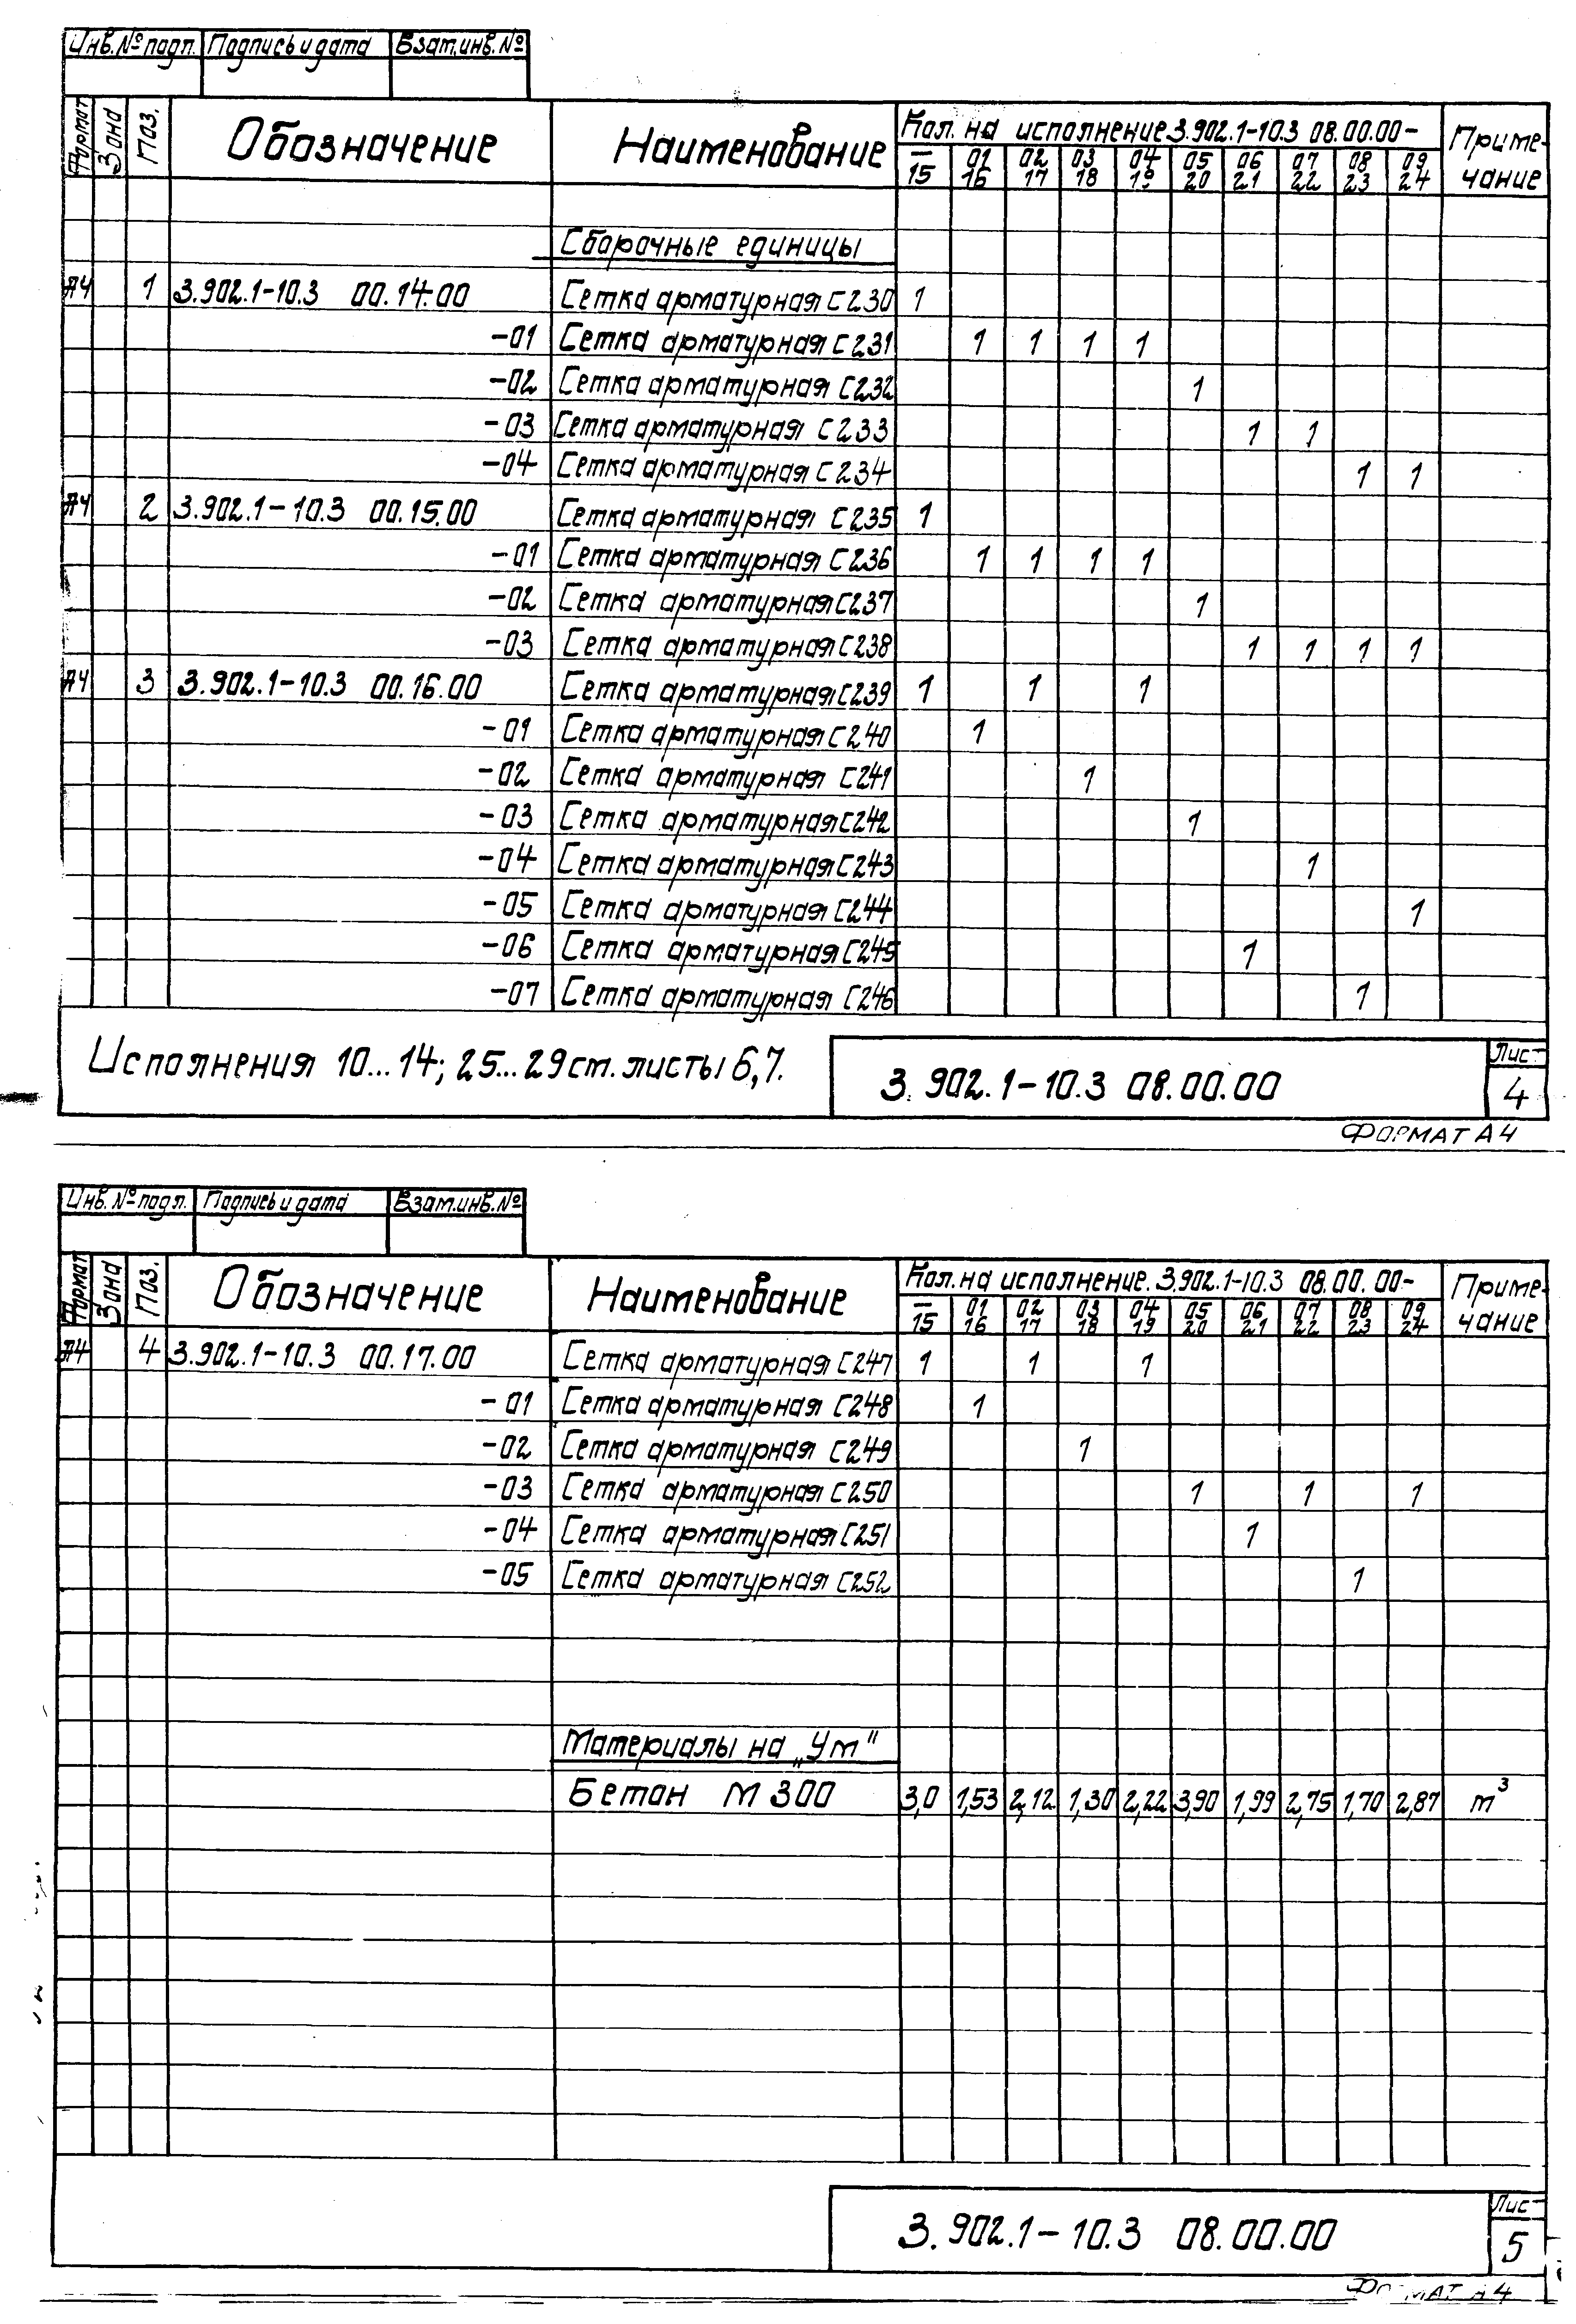 Инв.№ подл. Подпись и дата Взам.инв.№
Формат Зона Поз. Обозначение Наименование Кол. на исполнение 3.902.1-10.3 08.00.00- Примечание
— 01 02 03 04 05 06 07 08 09
15 16 17 18 19 20 21 22 23 24
Сборочные единицы
А4 1 3.902.1-10.3 00.14.00 Сетка арматурная С230 1
-01 Сетка арматурная С231 1 1 1 1
-02 Сетка арматурная С232 1
-03 Сетка арматурная С233 1 1
-04 Сетка арматурная С234 1 1
А4 2 3.902.1-10.3 00.15.00 Сетка арматурная С235 1
-01 Сетка арматурная С236 1 1 1 1
-02 Сетка арматурная С237 1
-03 Сетка арматурная С238 1 1 1 1
А4 3 3.902.1-10.3 00.16.00 Сетка арматурная С239 1 1 1
-01 Сетка арматурная С240 1
-02 Сетка арматурная С241 1
-03 Сетка арматурная С242 1
-04 Сетка арматурная С243 1
-05 Сетка арматурная С244 1
-06 Сетка арматурная С245 1
-07 Сетка арматурная С246 1
Исполнения 10...14; 25...29 см. листы 6,7.
3.902.1-10.3 08.00.00
Лист
4
ФОРМАТ А4
Инв.№ подл. Подпись и дата Взам.инв.№
Формат Зона Поз. Обозначение Наименование Кол. на исполнение. 3.902.1-10.3 08.00.00- Примечание
— 01 02 03 04 05 06 07 08 09
15 16 17 18 19 20 21 22 23 24
А4 4 3.902.1-10.3 00.17.00 Сетка арматурная С247 1 1 1
-01 Сетка арматурная С248 1
-02 Сетка арматурная С249 1
-03 Сетка арматурная С250 1 1 1
-04 Сетка арматурная С251 1
-05 Сетка арматурная С252 1
Материалы на „Ум"
Бетон М300 3,0 1,53 2,12 1,30 2,22 3,90 1,99 2,75 1,70 2,87 м³
3.902.1-10.3 08.00.00
Лист
5
ФОРМАТ А4